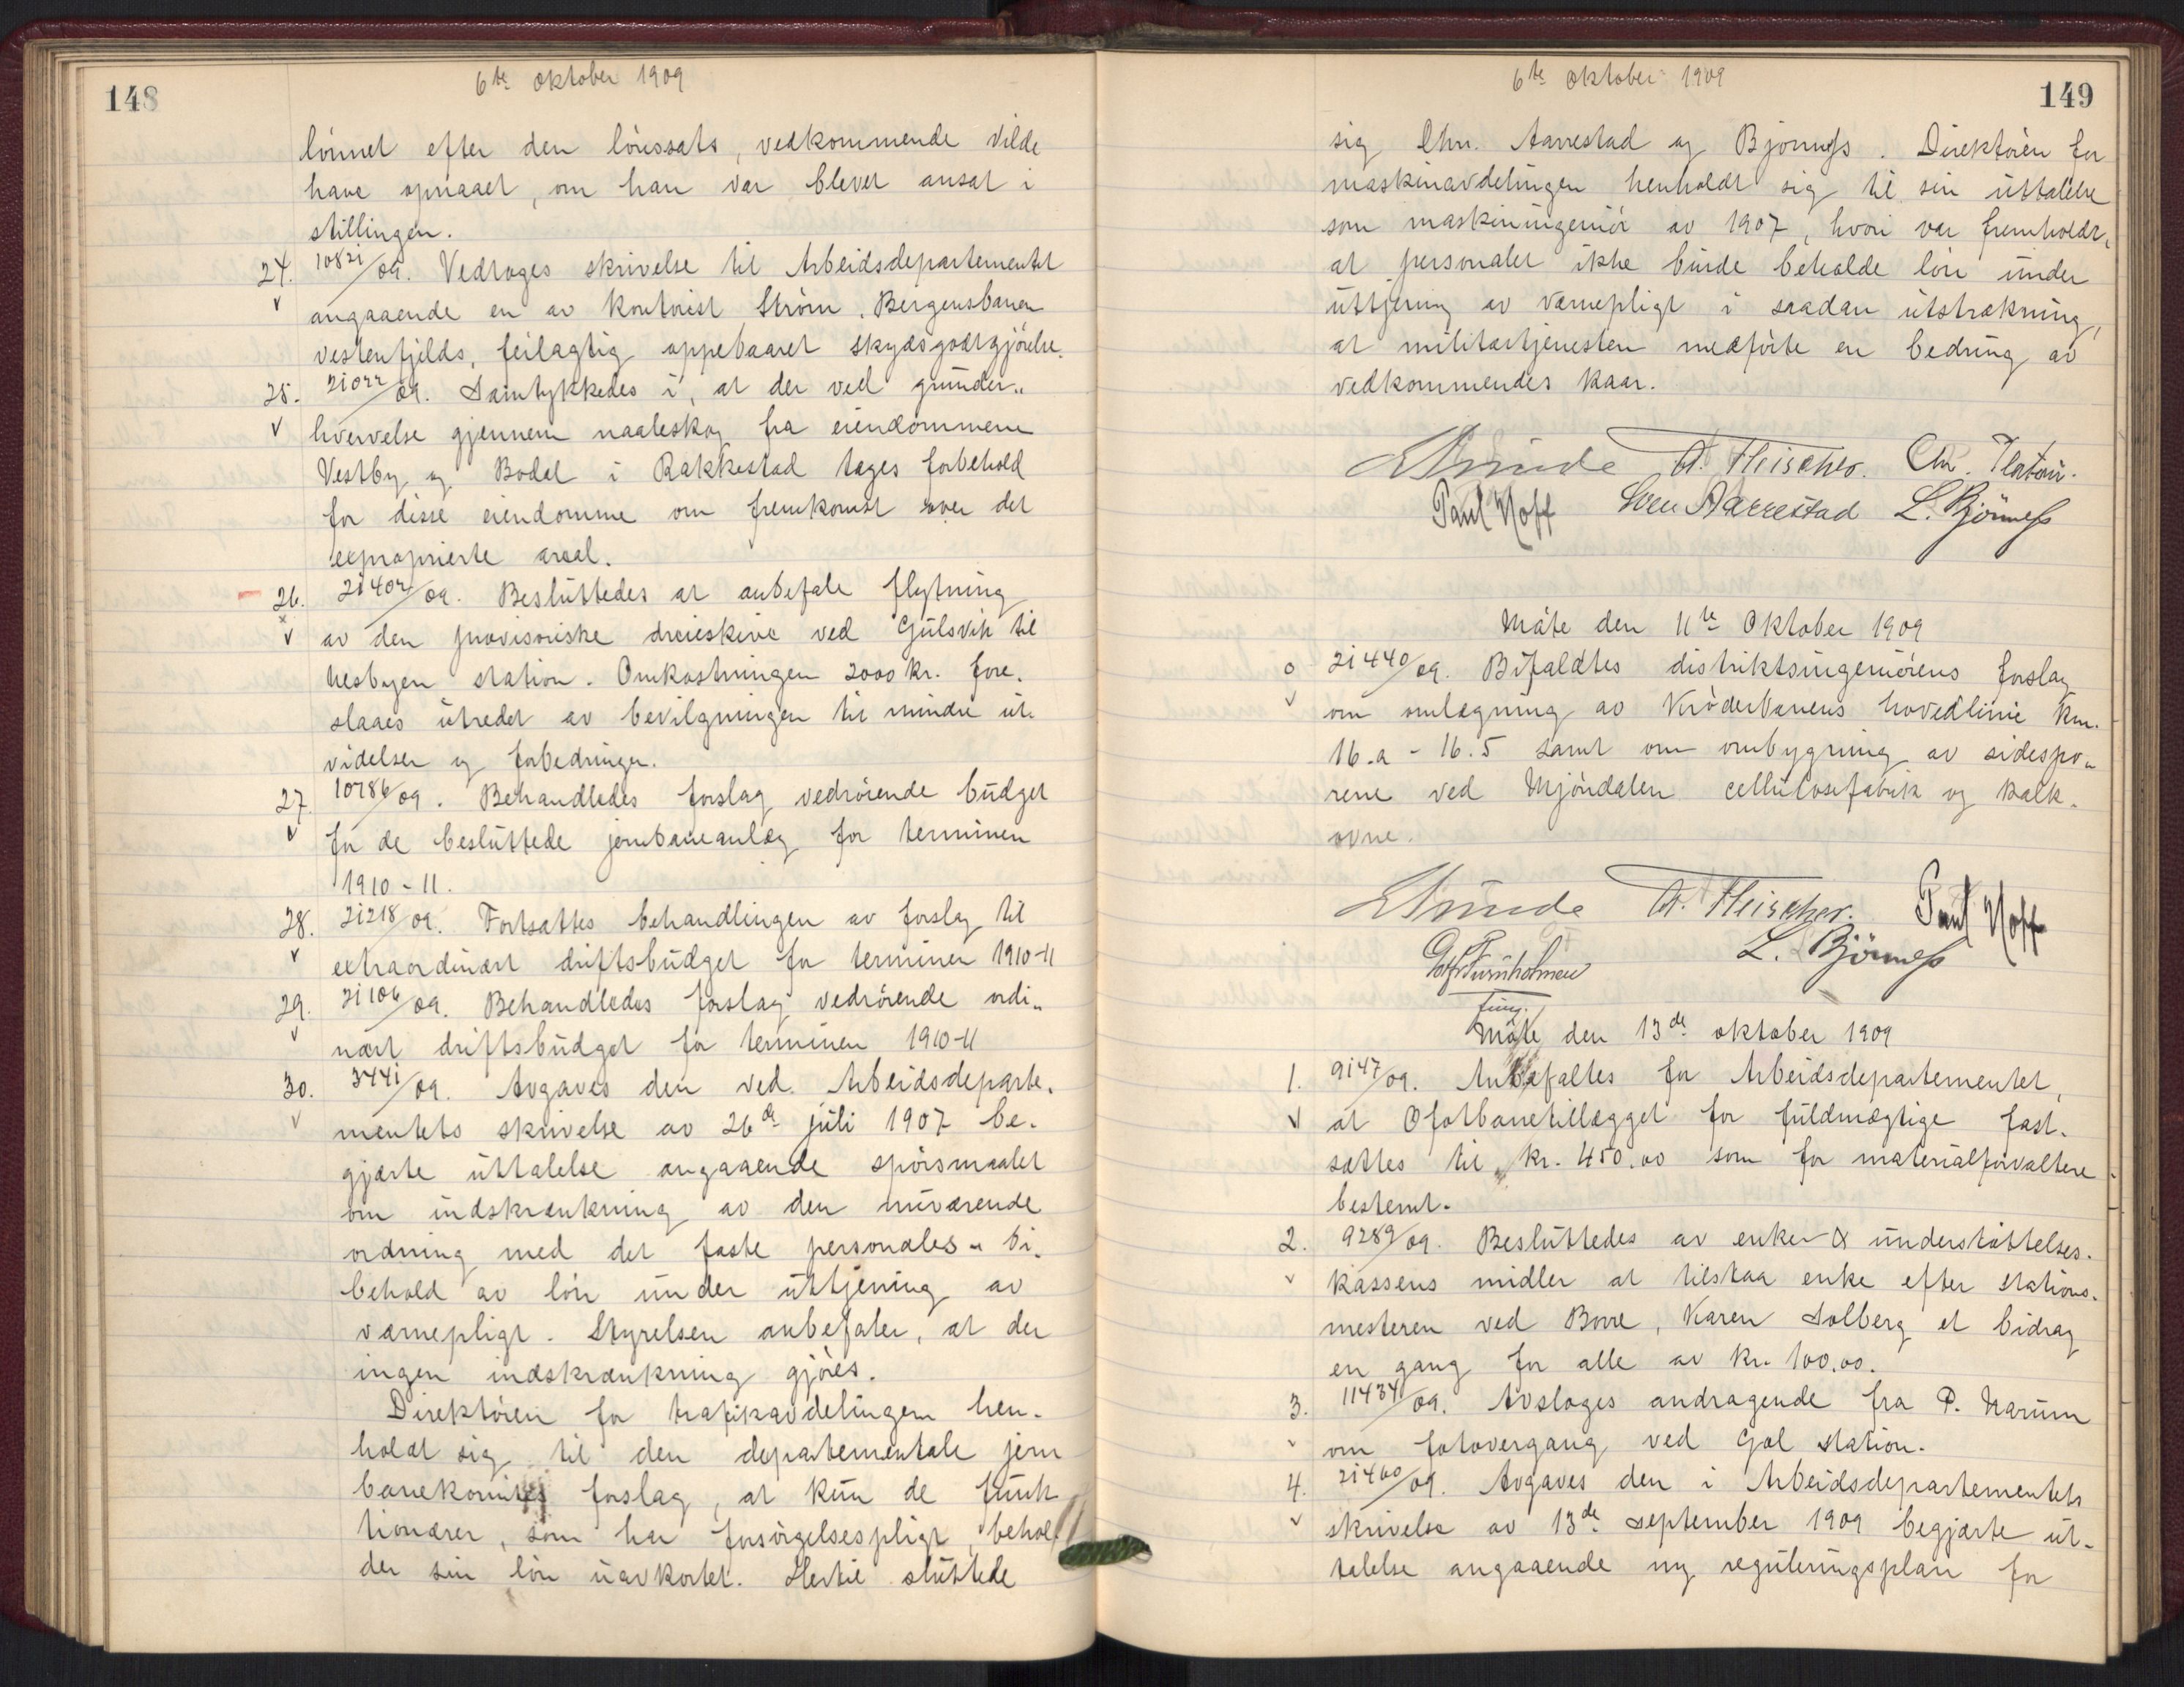 148
6te oktober 1909
lönnet efter den lönssats, vedkommende vilde
have opnaaet, om han var blevet ansat i
stillingen.
24. 10821/09. Vedtoges skrivelse til Arbeidsdepartementet
v angaaende en av kontorist Ström, Bergensbanen
vestenfjelds, feilagtig oppebaaret skydsgodtgjörelse.
25. 21022/09. Samtykkedes i, at der ved grunder„
v hvervelse gjennem naaleskog fra eiendommene
Vestby og Bodal i Rakkestad tages forbehold
for disse eiendomme om fremkomst over det
exproprierte areal.
26. 21402/09. Besluttedes at anbefale flytning
v av den provisoriske dreieskive ved Gulsvik til
Nesbyen station. Omkostningen 2000 kr. fore„
slaaes utredet av bevilgningen til mindre ut„
videlser og forbedringer.
27. 10786/09. Behandledes forslag vedrörende budget
v for de besluttede jernbaneanlæg for terminen
1910-11.
28. 21218/09. Fortsattes behandlingen av forslag til
v extraordinært driftsbudget for terminen 1910-11
29. 21106/09. Behandledes forslag vedrörende ordi„
v nært driftsbudget for terminen 1910-11
30. 3441/09. Avgaves den ved Arbeidsdeparte„
v mentets skrivelse av 26de juli 1907 be„
gjærte uttalelse angaaende spörsmaalet
om indskrænkning av den nuværende
ordning med det faste personales„ bi„
behold av lön under uttjening av
værnepligt. Styrelsen anbefaler, at der
ingen indskrænkning gjöres.
Direktören for trafikavdelingen hen„
holdt sig til den departementale jern
banekomites forslag, at kun de funk
tionærer, som har forsörgelsespligt, behol„
der sin lön uavkortet. Hertil sluttede
6te oktober 1909
149
sig Chr. Aarrestad og Björnness. Direktören for
maskinavdelingen henholdt sig til sin uttalelse
som maskiningeniör av 1907, hvori var fremholdt,
at personalet ikke burde beholde lön under
uttjening av værnepligt i saadan utstrækning,
at militærtjenesten medförte en bedring av
vedkommendes kaar.
A. Fleischer. Chr. Platou.
Paul Hoff Sven Aarrestad L. Björnness
Möte den 11te Oktober 1909
o 21440/09. Bifaldtes distriktsingeniörens forslag
v om omlægning av Kröderbanens hovedlinie km.
16.2 - 16.5 samt om ombygning av sidespo„
rene ved Mjöndalen cellulosefabrik og kalk„
ovne.
A. Fleischer. Paul Hoff
L. Björnness
fung.
Möte den 13de oktober 1909
1. 9147/09. Anbefaltes for Arbeidsdepartementet,
v at Ofotbanetillægget for fuldmægtige fast„
sættes til kr. 450.00 som for materialforvaltere
bestemt.
2. 9289/09. Besluttedes av enke- & understöttelses„
v kassens midler at tilstaa enke efter stations„
mesteren ved Borre, Karen Solberg et bidrag
en gang for alle av kr. 100.00.
3. 11434/09. Avsloges andragende fra P. Narum
v om fotovergang ved Gol station.
4. 21460/09. Avgaves den i Arbeidsdepartementets
v skrivelse av 13de september 1909 begjærte ut„
talelse angaaende ny reguleringsplan for